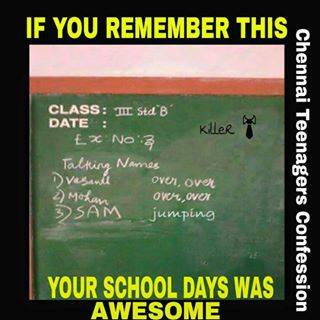 IF YOU REMEMBER THIS
Chennai Teenagers Confession
CLASS: III Std 'B'
DATE :
Ex No: 3
Killer
Talking Names
1) Vasanth over, over
2) Mohan over, over
3) SAM jumping
YOUR SCHOOL DAYS WAS
AWESOME